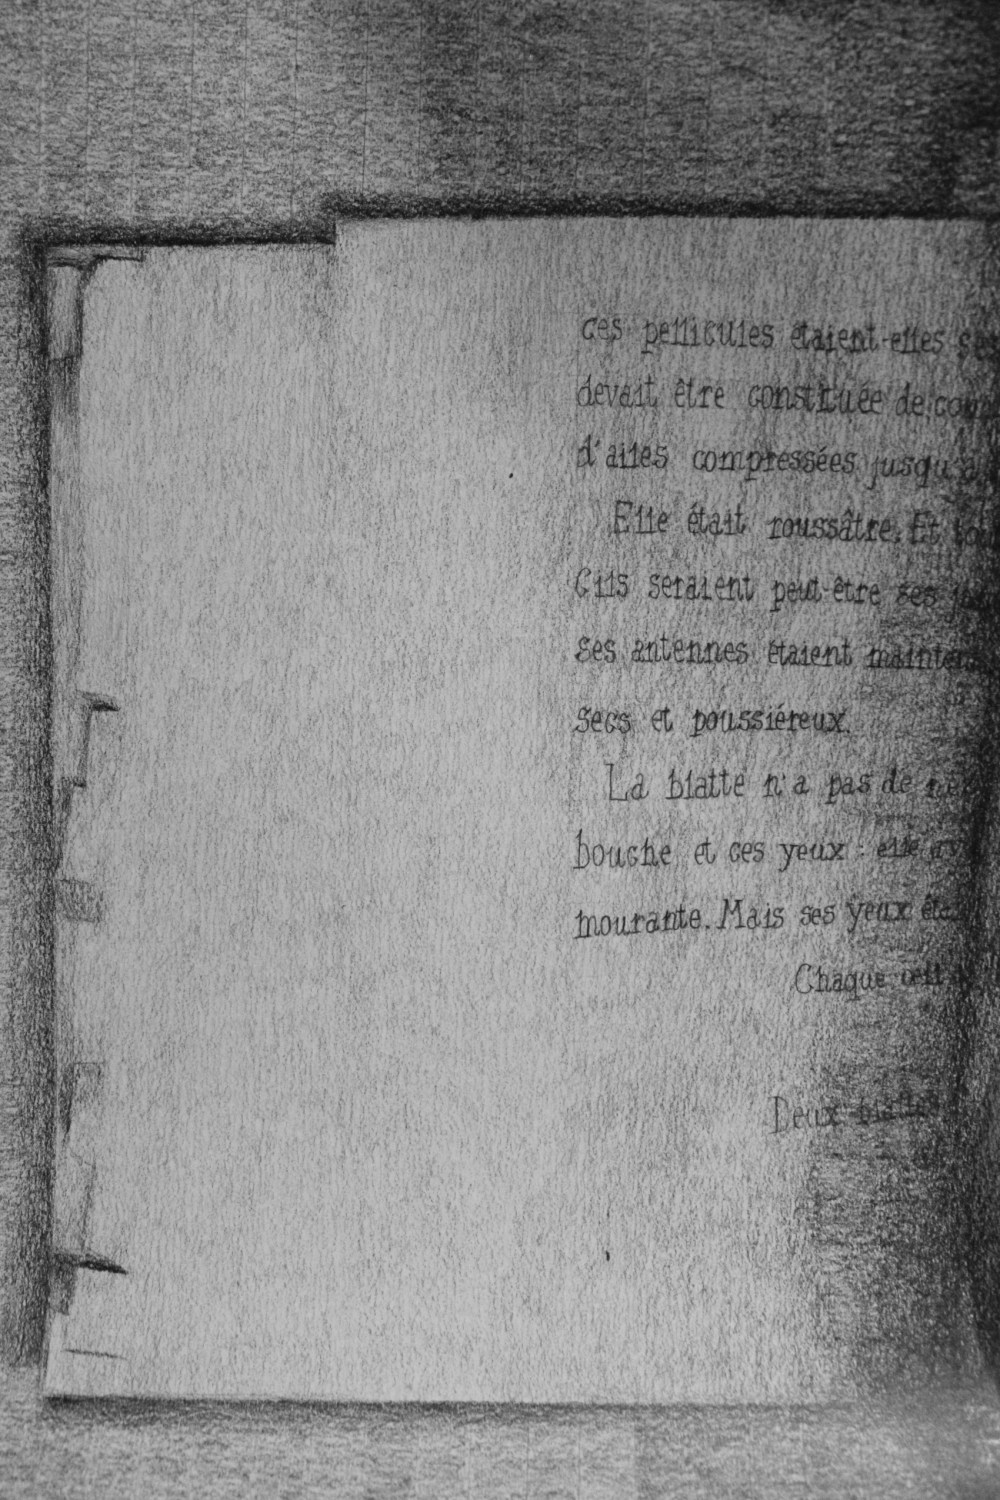 ces pellicules étaient-elles ses
devait être constituée de
d'ailes compressées jusqu'à
Elle était roussâtre. Et
Cils seraient peut-être ses
ses antennes étaient
secs et poussiéreux.
La blatte n'a pas de
bouche et ces yeux : elle
mourante. Mais ses yeux
Chaque œil
Deux blattes